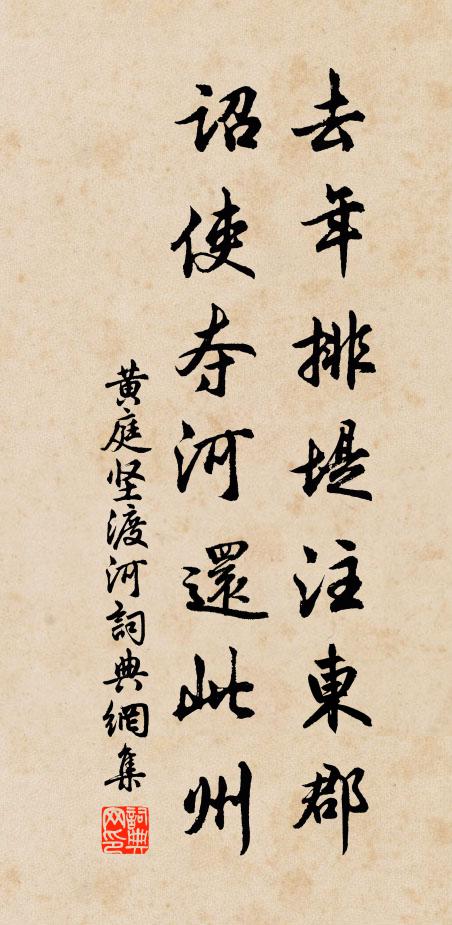 去年排堤注東郡
詔使夺河還此州
黄庭坚渡河詞典網集
詞典網印